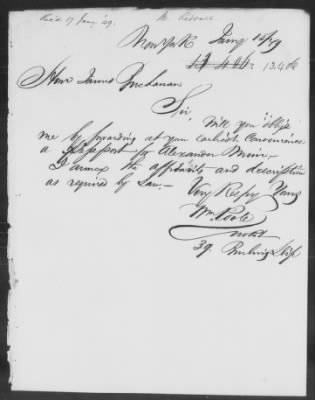 Rec'd 17 Jany '49.
New York Jany 15/49
13.406
Hon James Buchanan
Sir,
Will you oblige
me by forwarding at your earliest convenience
a passport for Alexander Muir.
I annex the affidavits and description
as required by Law.—
Very Respy Yours
Wm Poole
39